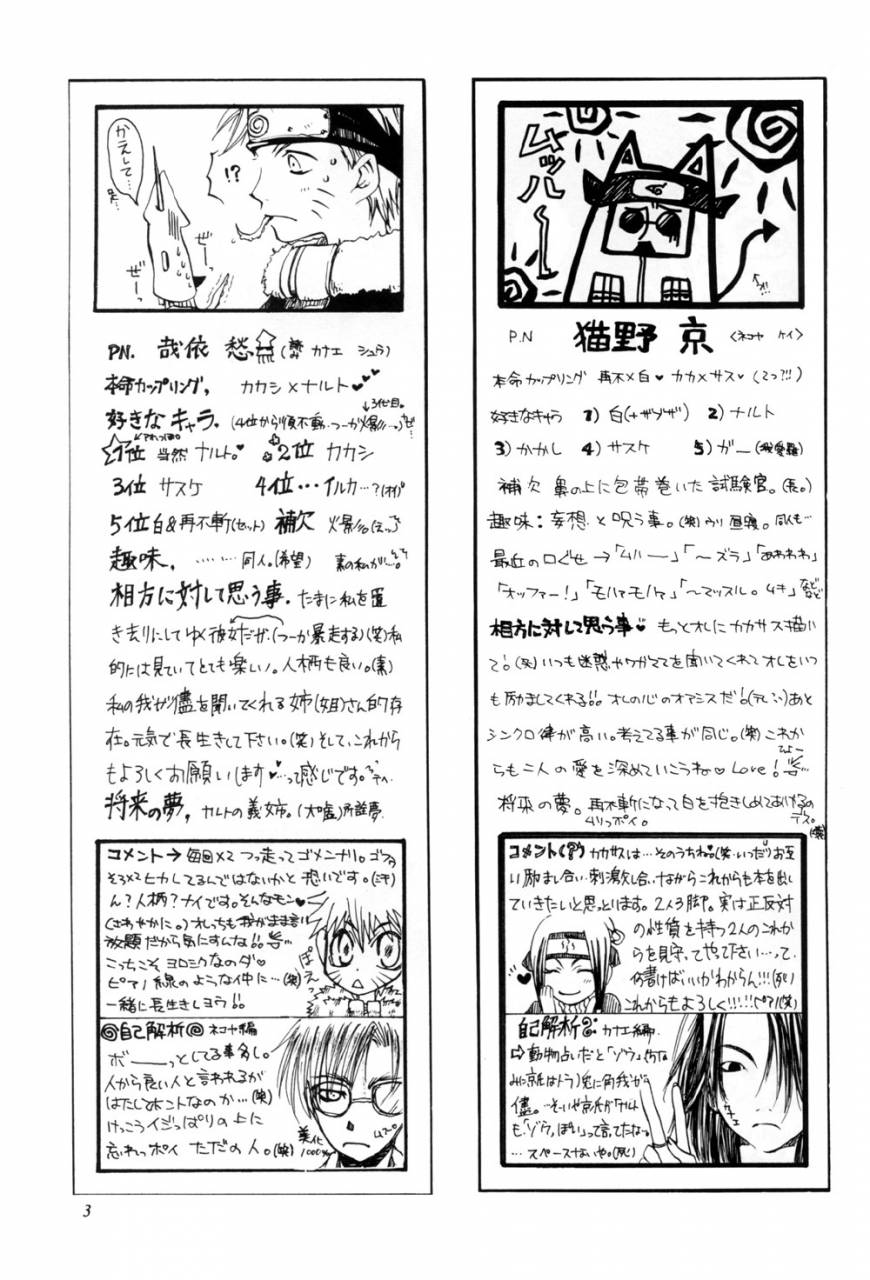 ムッハー
P.N 猫野 京 〈ネコヤ ケイ〉
本命カップリング 再不×白♥ カカ×サス♥ (てっ?!!)
好きなキャラ 1) 白(+ザブザ) 2) ナルト
3) かかし 4) サスケ 5) ガー(我愛羅)
補欠 鼻の上に包帯巻いた試験官。(長。)
趣味:妄想と呪う事。(笑) 昼寝。同人も…
最近の口ぐせ→「ムハー」「〜ズラ」「あわわわ」
「オッファー!」「モルァモルァ」「〜マッスル。ムキ」などなど
相方に対して思う事♥ もっとオレにカカサス描い
て!(笑)いつも迷惑やワガママを聞いてくれてオレをいつ
も励ましてくれる!!オレの心のオアシスだ!あと
シンクロ律が高い。考えてる事が同じ。(笑)これか
らも二人の愛を深めていこうね♡Love!
将来の夢。再不斬になって白を抱きしめてあげるの
デス。(笑)
ムリっポイ。
コメント(?) カカサスは…そのうちね。(笑・いつだ)お互
い励まし合い・刺激し合いながらこれからも本を出し
ていきたいと思っとります。2人3脚。実は正反対
の性質を持つ2人のこれか
らを見守ってやて下さい…って、
何書けばいいかわからん!!!(死)
これからもよろしく!!!!!
自己解析 カナエ編
⇨動物占いだと「ゾウ」(ちな
みに京氏はトラ)兎に角我が
儘。…
も「ゾウっぽい」って言てたな。
…スペースないや。(死)
かえして…
!?
ぜーっ
ぜーっ
PN. 哉依 愁 (カナエ シュラ)
本命カップリング, カカシ×ナルト♥♥
好きなキャラ。(4位から順不動
1位 当然 ナルト。♥ 2位 カカシ
3位 サスケ 4位…イルカ…?(オイ)
5位 白&再不斬(セット) 補欠 火影
趣味, ……同人。(希望) 素の私が
相方に対して思う事. たまに私を置
き去りにしてゆく彼女だが(つーか暴走する)(笑)私
的には見ていてとても楽しい。人柄も良い。(素)
私の我が儘を聞いてくれる姉(姐)さん的存
在。元気で長生きして下さい。(笑)そして、これから
もよろしくお願いします♥…って感じです。
将来の夢, カルトの義姉。(大嘘)所詮夢.
コメント→毎回×2つっ走ってゴメンナリ。
そろ×2ヒカしてるんではないかと恐いです。
ん?人柄?ナイです。そんなモン♥
(さわやかに。)オレっちも我がまま言い
放題だから気にすんな!!
こっちこそヨロシクなのダ♥
ピアノ線のような仲に…(笑)
一緒に長生きしヨう!!
ぽえっ
自己解析 ネコヤ編
ボーーっとしてる事多し。
人から良い人と言われるが
はたしてホントなのか…(笑)
けっこうイジっぱりの上に
忘れっポイ ただの人。(笑)
美化
1000%
3